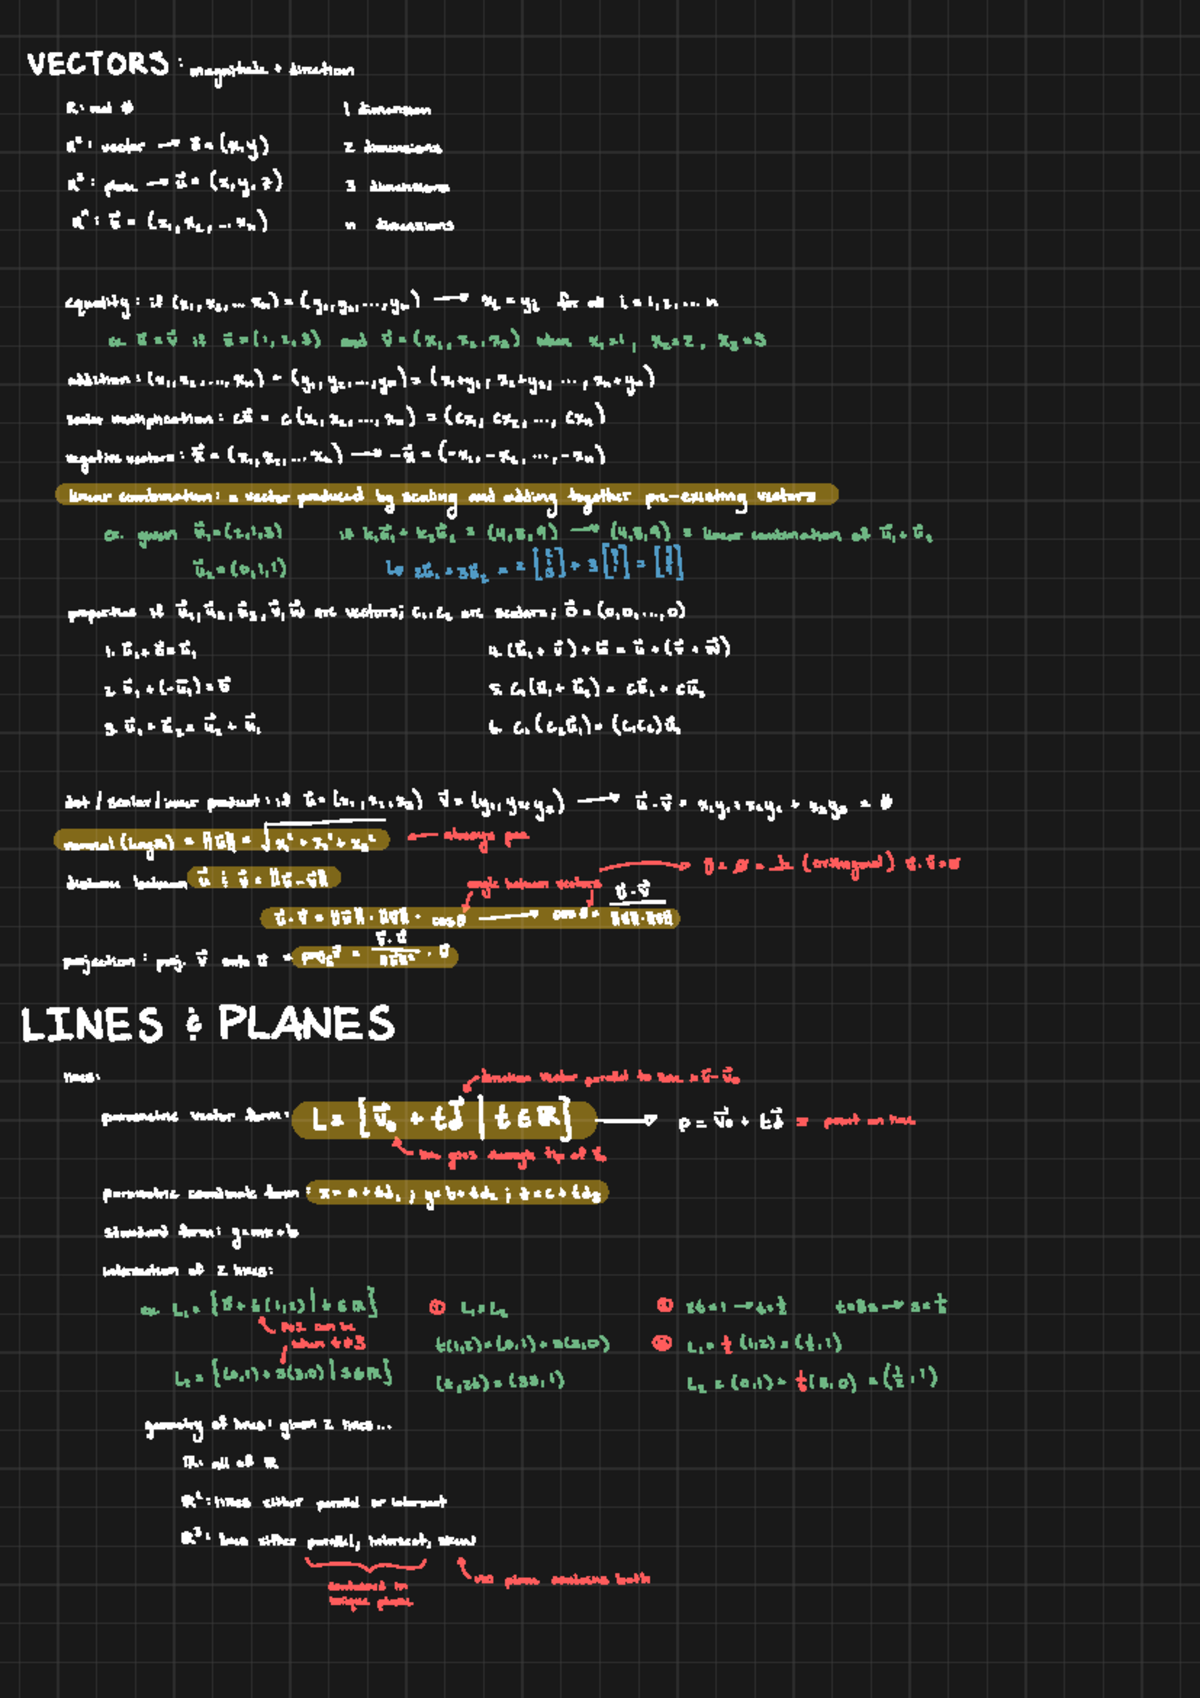 VECTORS : magnitude + direction
R: real # 1 dimension
R²: vector → u⃗ = (x,y) 2 dimensions
R³: plane → u⃗ = (x,y,z) 3 dimensions
Rⁿ: u⃗ = (x₁, x₂, ... xₙ) n dimensions
equality: if (x₁, x₂, ... xₙ) = (y₁, y₂, ..., yₙ) → xᵢ = yᵢ for all i = 1, 2, ... n
ex. u⃗ = v⃗ if u⃗ = (1, 2, 3) and v⃗ = (x₁, x₂, x₃) when x₁=1, x₂=2, x₃=3
addition: (x₁, x₂, ..., xₙ) + (y₁, y₂, ..., yₙ) = (x₁+y₁, x₂+y₂, ..., xₙ+yₙ)
scalar multiplication: cx⃗ = c(x₁, x₂, ..., xₙ) = (cx₁, cx₂, ..., cxₙ)
negative vectors: x⃗ = (x₁, x₂, ... xₙ) → -x⃗ = (-x₁, -x₂, ..., -xₙ)
linear combination: a vector produced by scaling and adding together pre-existing vectors
ex. given u⃗₁ = (2,1,3) if k₁u⃗₁ + k₂u⃗₂ = (4,5,9) → (4,5,9) = linear combination of u⃗₁ + u⃗₂
u⃗₂ = (0,1,1) ↳ 2u⃗₁ + 3u⃗₂ = 2
properties if u⃗₁, u⃗₂, u⃗₃, v⃗, w⃗ are vectors; c₁, c₂ are scalars; 0⃗ = (0,0,...,0)
1. u⃗₁ + 0⃗ = u⃗₁ 4. (u⃗₁ + v⃗) + w⃗ = u⃗ + (v⃗ + w⃗)
2. u⃗₁ + (-u⃗₁) = 0⃗ 5. c₁(u⃗₁ + u⃗₂) = cu⃗₁ + cu⃗₂
3. u⃗₁ + u⃗₂ = u⃗₂ + u⃗₁ 6. c₁(c₂u⃗₁) = (c₁c₂)u⃗₁
dot / scalar / inner product: if u⃗ = (x₁, x₂, x₃) v⃗ = (y₁, y₂, y₃) → u⃗ · v⃗ = x₁y₁ + x₂y₂ + x₃y₃ = #
(length) = ||u⃗|| = √x₁² + x₂² + x₃² ← always pos
distance between u⃗ & v⃗ = ||u⃗ - v⃗||
angle between vectors (orthogonal) u⃗ · v⃗ = 0
u⃗ · v⃗ = ||u⃗|| · ||v⃗|| · cosθ → cosθ = u⃗ · v⃗ / ||u⃗|| · ||v⃗||
projection: proj. v⃗ onto u⃗ = proj v⃗ = v⃗ · u⃗ / ||u⃗||² · u⃗
LINES & PLANES
lines:
direction vector parallel to line
parametric vector form: L = [v⃗₀ + td⃗ | t ∈ R] → p = v⃗₀ + td⃗ = point on line
line goes through tip of v⃗₀
parametric coordinate form: x = a + td₁ ; y = b + td₂ ; z = c + td₃
standard form: y = mx + b
intersection of 2 lines:
ex. L₁ = [0⃗ + t(1,2) | t ∈ R] ① L₁ = L₂ ① 2t = 1 → t = ½
t(1,2) = (0,1) + s(3,0) L₁ = ½ (1,2) = (½, 1)
L₂ = [(0,1) + s(3,0) | s ∈ R] (t, 2t) = (3s, 1) L₂ = (0,1) + (3,0) = (½, 1)
geometry of lines: given 2 lines...
R: all of R
R²: lines either parallel or intersect
R³: lines either parallel, intersect, skew
contained in
unique plane
no plane contains both